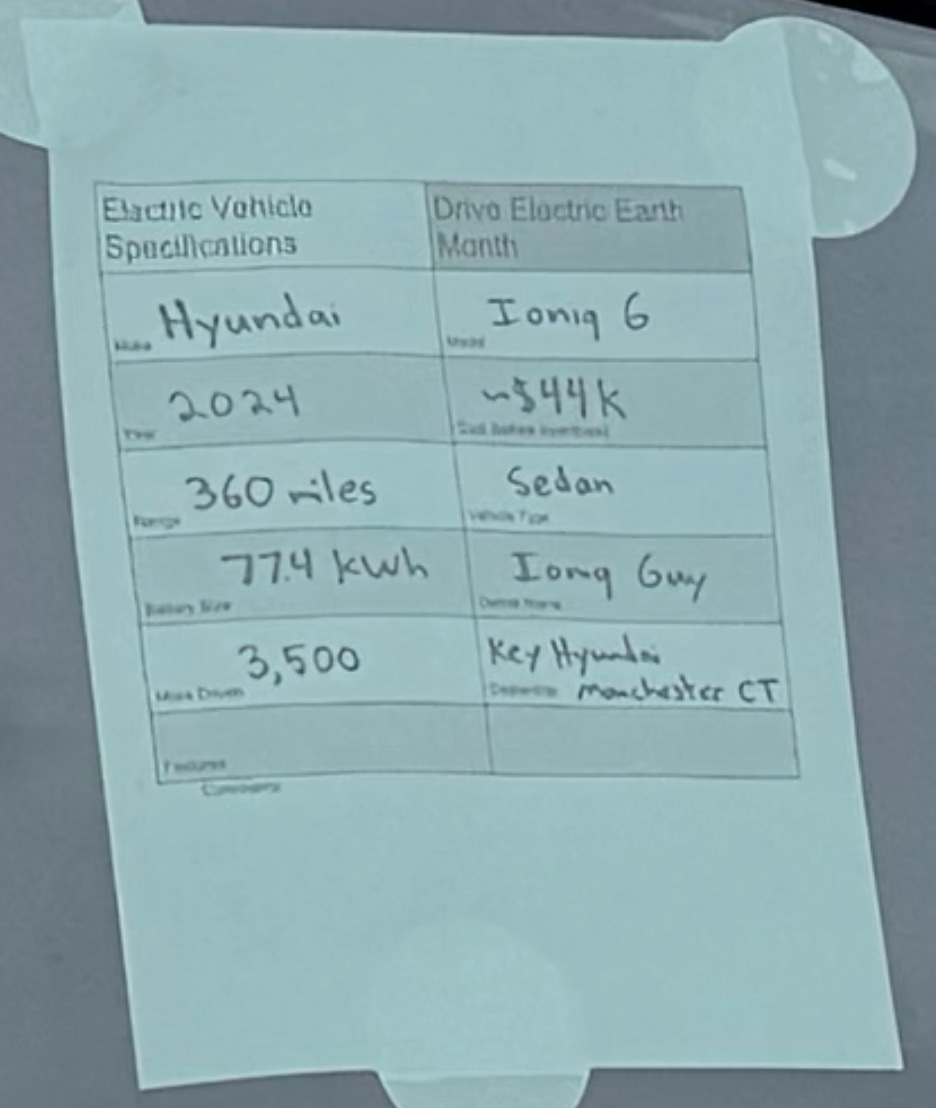 Electric Vehicle
Specifications
Drive Electric Earth
Month
Hyundai
Make
Ioniq 6
Model
2024
Year
~$44K
Cost (before incentives)
360 miles
Range
Sedan
Vehicle Type
77.4 kwh
Battery Size
Ioniq Guy
Owner Name
3,500
Miles Driven
Key Hyundai
Dealership Manchester CT
Features
Comments